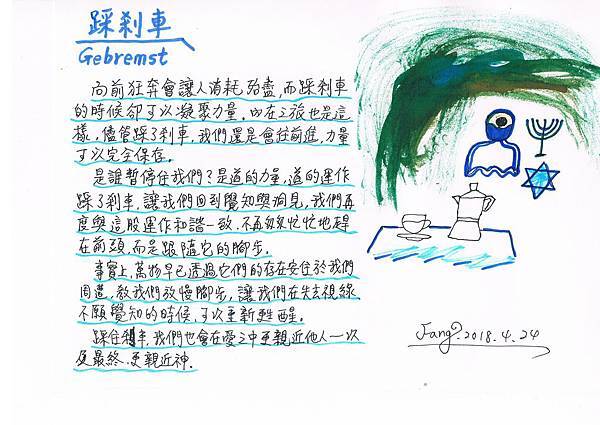 踩剎車
Gebremst
向前狂奔會讓人消耗殆盡,而踩剎車
的時候卻可以凝聚力量。內在之旅也是這
樣,儘管踩了剎車,我們還是會往前進,力量
可以完全保存。
是誰暫停住我們?是道的力量,道的運作
踩了剎車,讓我們回到覺知與洞見,我們再
度與這股運作和諧一致。不再匆匆忙忙地趕
在前頭,而是跟隨它的腳步。
事實上,萬物早已透過它們的存在安住於我們
周遭,教我們放慢腳步,讓我們在失去視線、
不願覺知的時候,可以重新甦醒。
踩住剎車,我們也會在愛之中更親近他人一次
最終更親近神.
Fang.2018.4.24